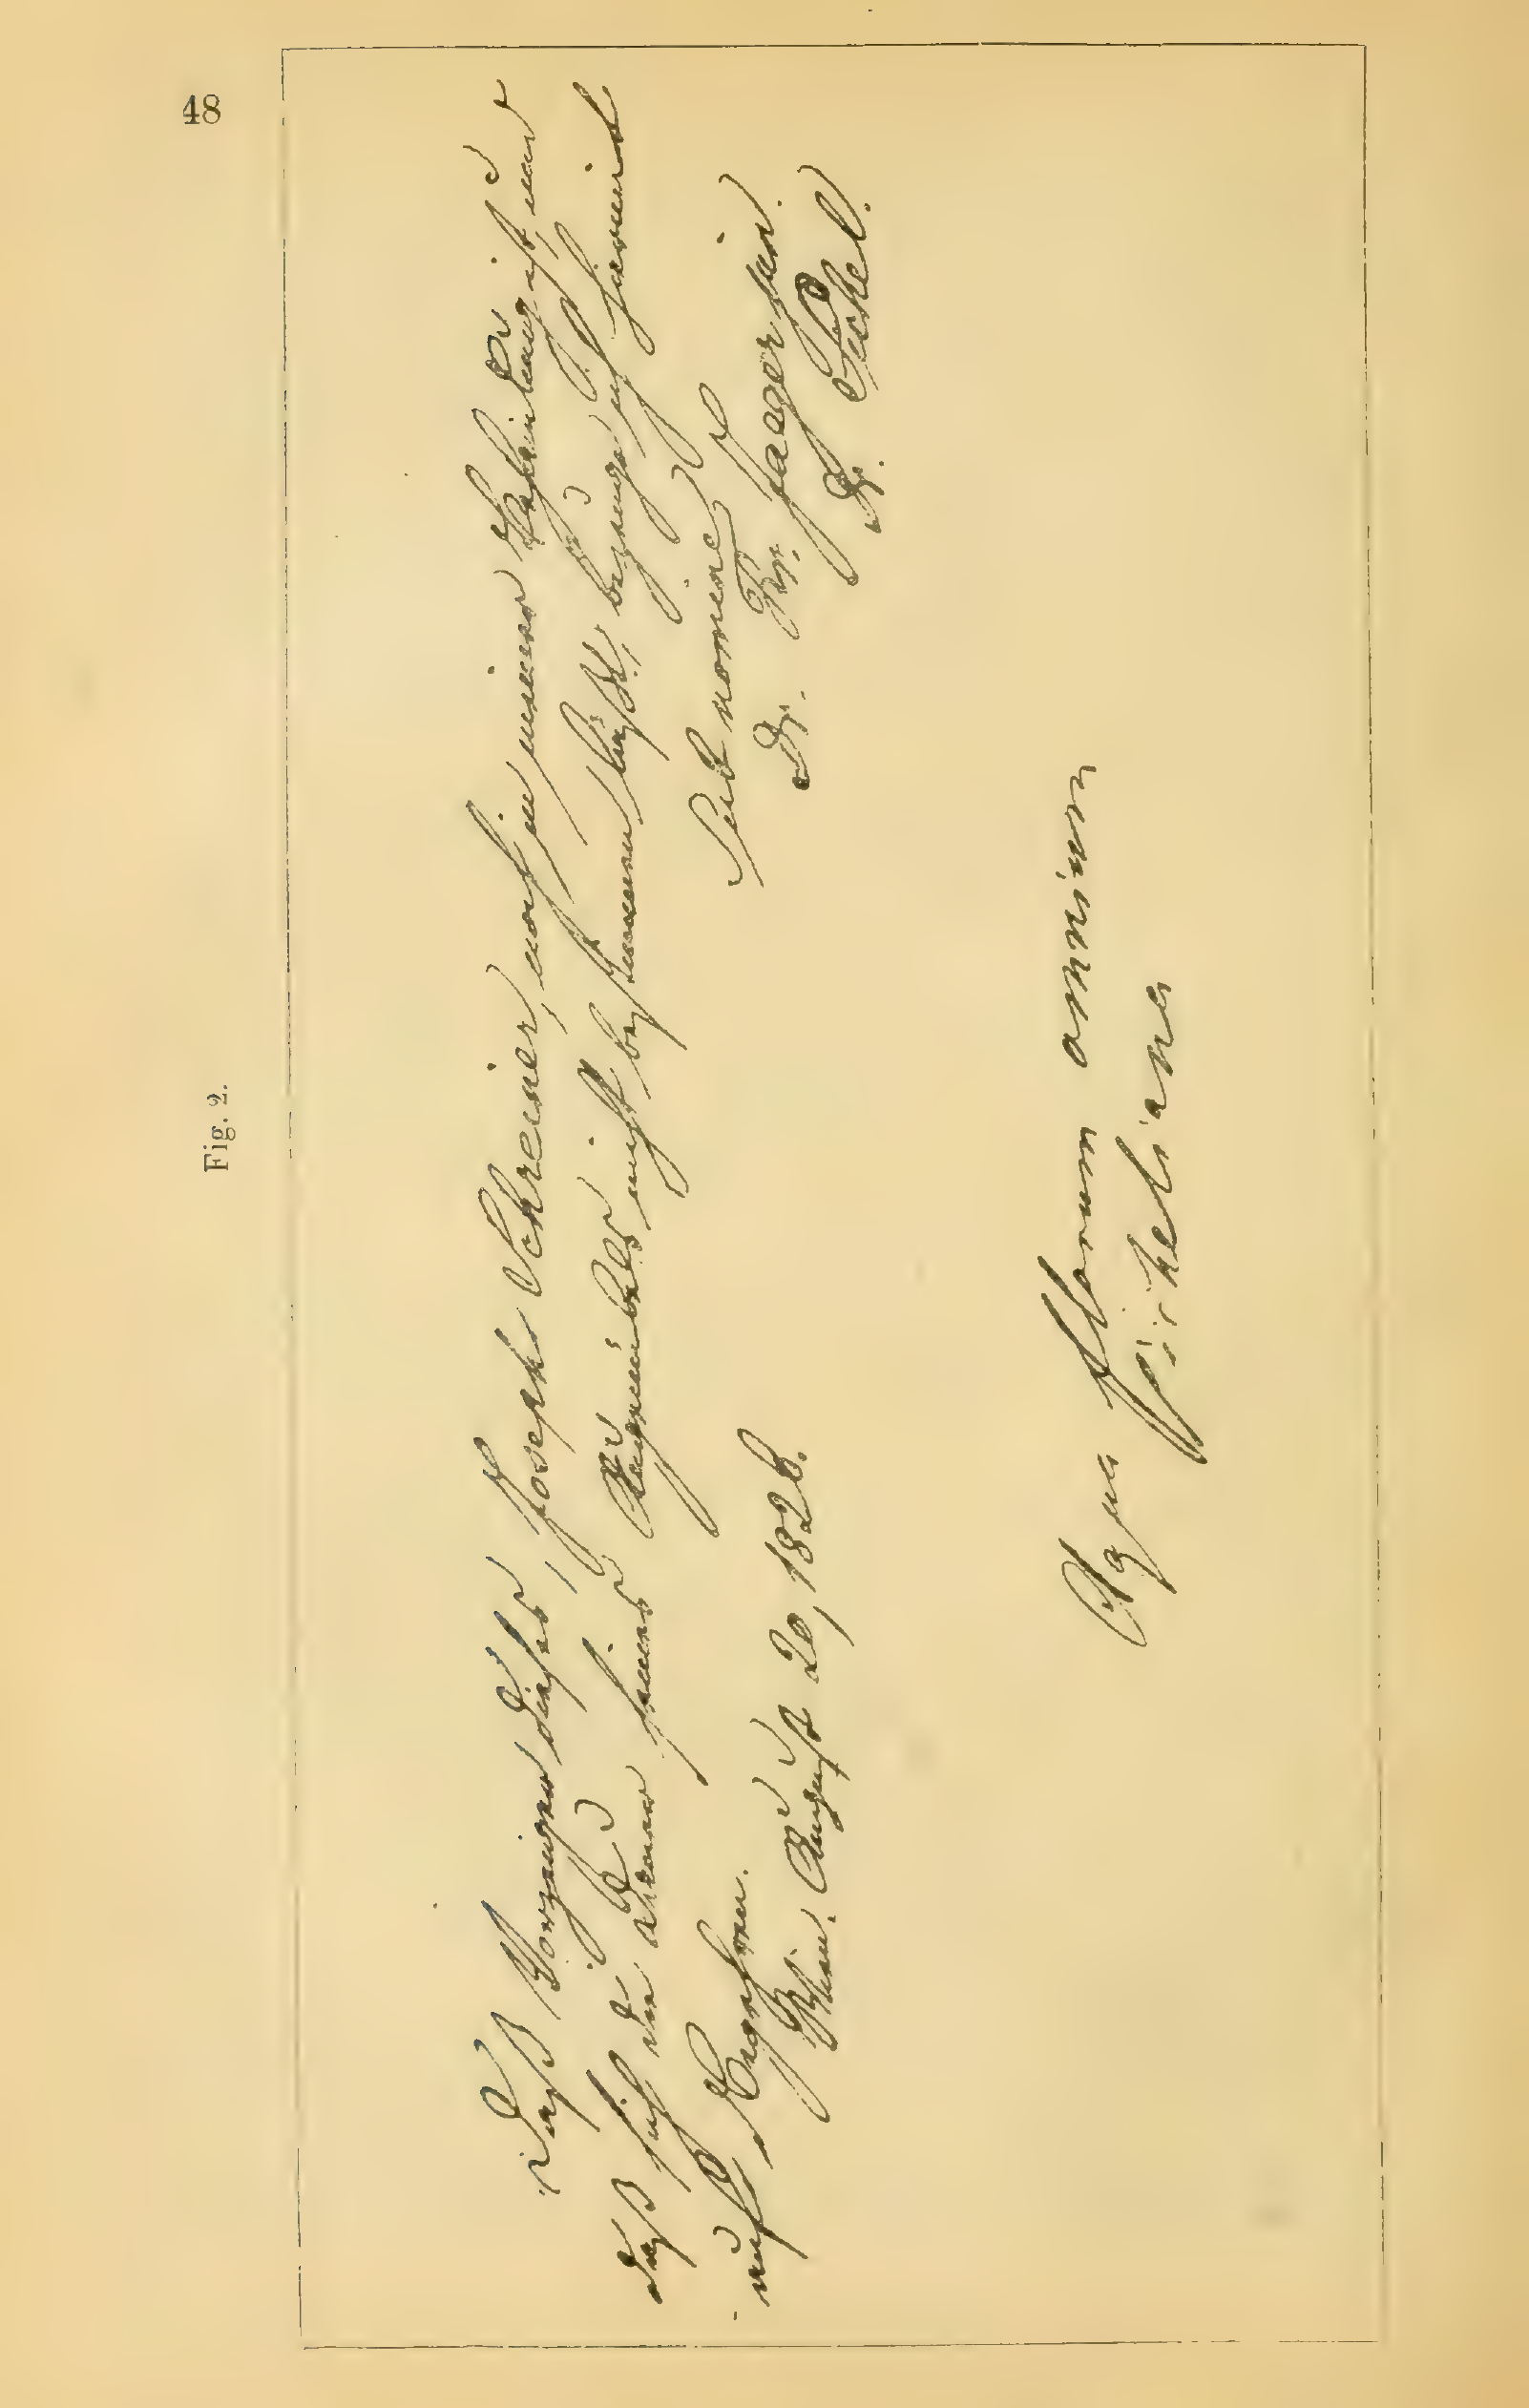 48
Fig. 2.
Daß Vorzeiger dieses, Joseph Schreiner, noch in meiner Behandlung ist, und
daß sich der Abdruck seines Augenübels nicht bestimmen läßt, bezeuge ich hiermit
auf Ersuchen.
Sub nomine
Wien. August 20, 1828.
Dr. Fr. Jaeger
Dr. Pickel.
Aqua florum omnium
Pikeliana